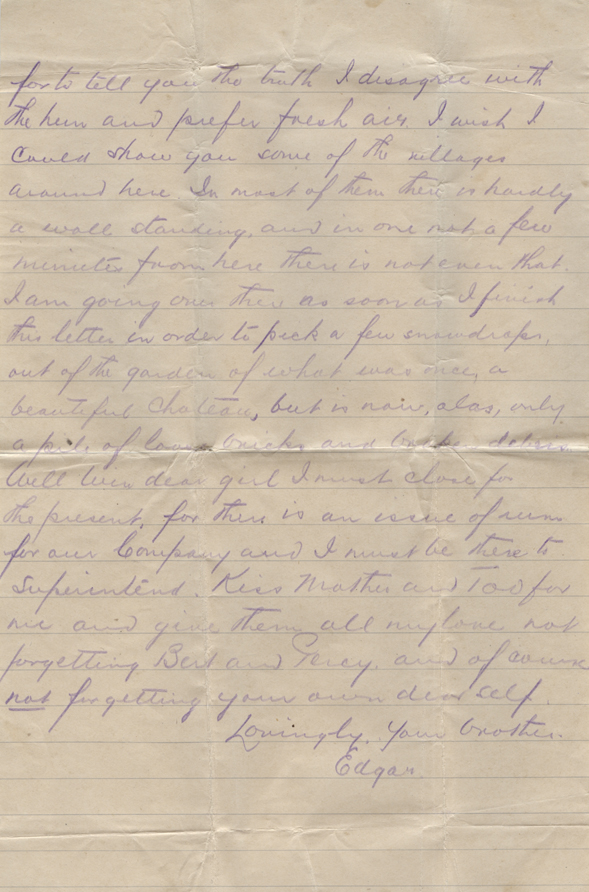 for to tell you the truth I disagree with
the hun and prefer fresh air. I wish I
could show you some of the villages
around here. In most of them there is hardly
a wall standing, and in one not a few
minutes from here there is not even that.
I am going over there as soon as I finish
this letter in order to pick a few snowdrops,
out of the garden of what was once, a
beautiful Chateau, but is now, alas, only
a pile of loose bricks and broken debris.
Well dear girl I must close for
the present, for there is an issue of rum
for our Company and I must be there to
superintend. Kiss Mother and Tod for
me and give them all my love not
forgetting Bert and Percy. and of course
not forgetting your own dear self.
Lovingly. Your brother.
Edgar.